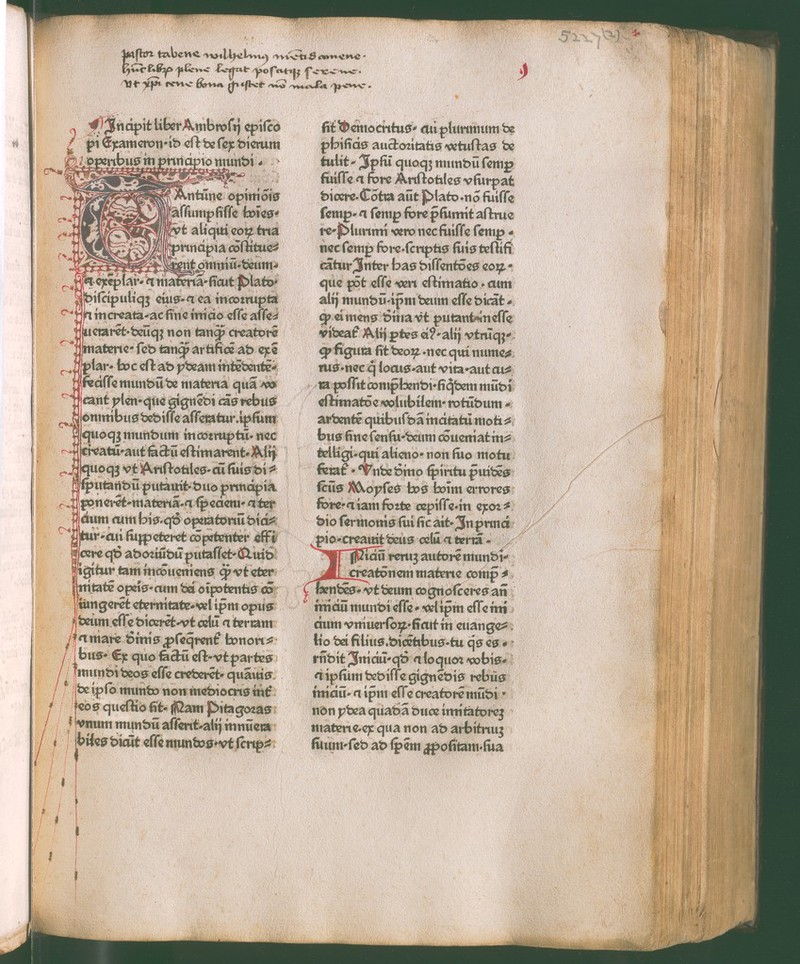 5227(2).
pastor tabene wilhelmꝰ
hūc librō plene legat posatqꝫ serene·
vt xp̄i cene bona gustet nō mala pene·
Incipit liber Ambrosij episco
pi Exameron·id est de sex dierum
operibus in principio mundi·
TAntūne opiniōis
assumpsisse hoīes·
vt aliqui eoꝝ tria
principia cōstitue⸗
rent omniū·deum·
⁊ exēplar·⁊ materiā·sicut Plato·
discipuliqꝫ eius·⁊ ea incorrupta
⁊ increata·ac sine inicio esse asse⸗
uerarēt·deūqꝫ non tanꝙ̄ creatorē
materie·sed tanꝙ̄ artificē ad exē
plar·hoc est ad ydeam intēdentē·
fecisse mundū de materia quā vo
cant ylen·que gignēdi cās rebus
omnibus dedisse asseratur.ipsum
quoqꝫ mundum incorruptū·nec
creatū·aut factū estimarent·Alij
quoqꝫ vt Aristotiles·cū suis di⸗
sputandū putauit·duo principia
ponerēt·materiā·⁊ speciem·⁊ ter
cium cum his·qd̄ operatoriū dici⸗
tur·cui suppeteret cōpetenter effi
cere qd̄ adoriūdū putasset·Quid
igitur tam incōueniens ꝙ̄ vt eter
nitatē operis·cum dei oīpotentis cō
iungerēt eternitate·vel ip̄m opus
deum esse dicerēt·vt celū ⁊ terram
⁊ mare diuīs ꝓseq̄rent̄ honori⸗
bus· Ex quo factū est·vt partes
mundi deos esse crederēt·quāuis
de ipso mundo non mediocris int̄
eos questio sit·Nam Pitagoras
vnum mundū asserit·alij innūera
biles dicūt esse mundos·vt scrip⸗
sit Democritus· cui plurimum de
phisicis auctoritatis vetustas de
tulit· Ip̄sū quoqꝫ mundū semꝑ
fuisse ⁊ fore Aristotiles vsurpat
dicere·Cōtra aūt Plato·nō fuisse
semꝑ·⁊ semꝑ fore p̄sumit astrue
re·Plurimi vero nec fuisse semꝑ·
nec semꝑ fore·scriptis suis testifi
cātur Inter has dissentōes eoꝝ·
que pōt esse veri estimatio·cum
alij mundū·ip̄m deum esse dicāt·
ꝙ ei mens diīna vt putant·inesse
videat̄ Alij ꝑtes ei⁹·alij vtrūqꝫ·
ꝙ figura sit deoꝝ·nec qui nume⸗
rus·nec q̄ locus·aut vita·aut cu⸗
ra possit comp̄hendi·siq̄dem mūdi
estimatōe volubilem·rotūdum·
ardentē quibusdā incitatū moti⸗
bus sine sensu·deum cōueniat in⸗
telligi·qui alieno·non suo motu
ferat̄·Vnde diīno spiritu p̄uidēs
sc̄us Moyses hos hoīm errores
fore·⁊ iam forte cepisse·in exor⸗
dio sermonis sui sic ait·In princi
pio·creauit deus celū ⁊ terrā·
INiciū rerūꝫ autorē mundi·
creatōnem materie comp̄⸗
hendēs·vt deum cognosceres an̄
iniciū mundi esse·vel ip̄m esse ini
cium vniuersoꝝ·sicut in euange⸗
lio dei filius.dicētibus·tu q̄s es·
rn̄dit Iniciū·qd̄ ⁊ loquor vobis·
⁊ ipsum dedisse gignēdis rebus
iniciū·⁊ ip̄m esse creatorē mūdi·
non ydea quadā duce imitatorēꝫ
materie·ex qua non ad arbitriuꝫ
suum·sed ad sp̄em ꝓpositam·sua